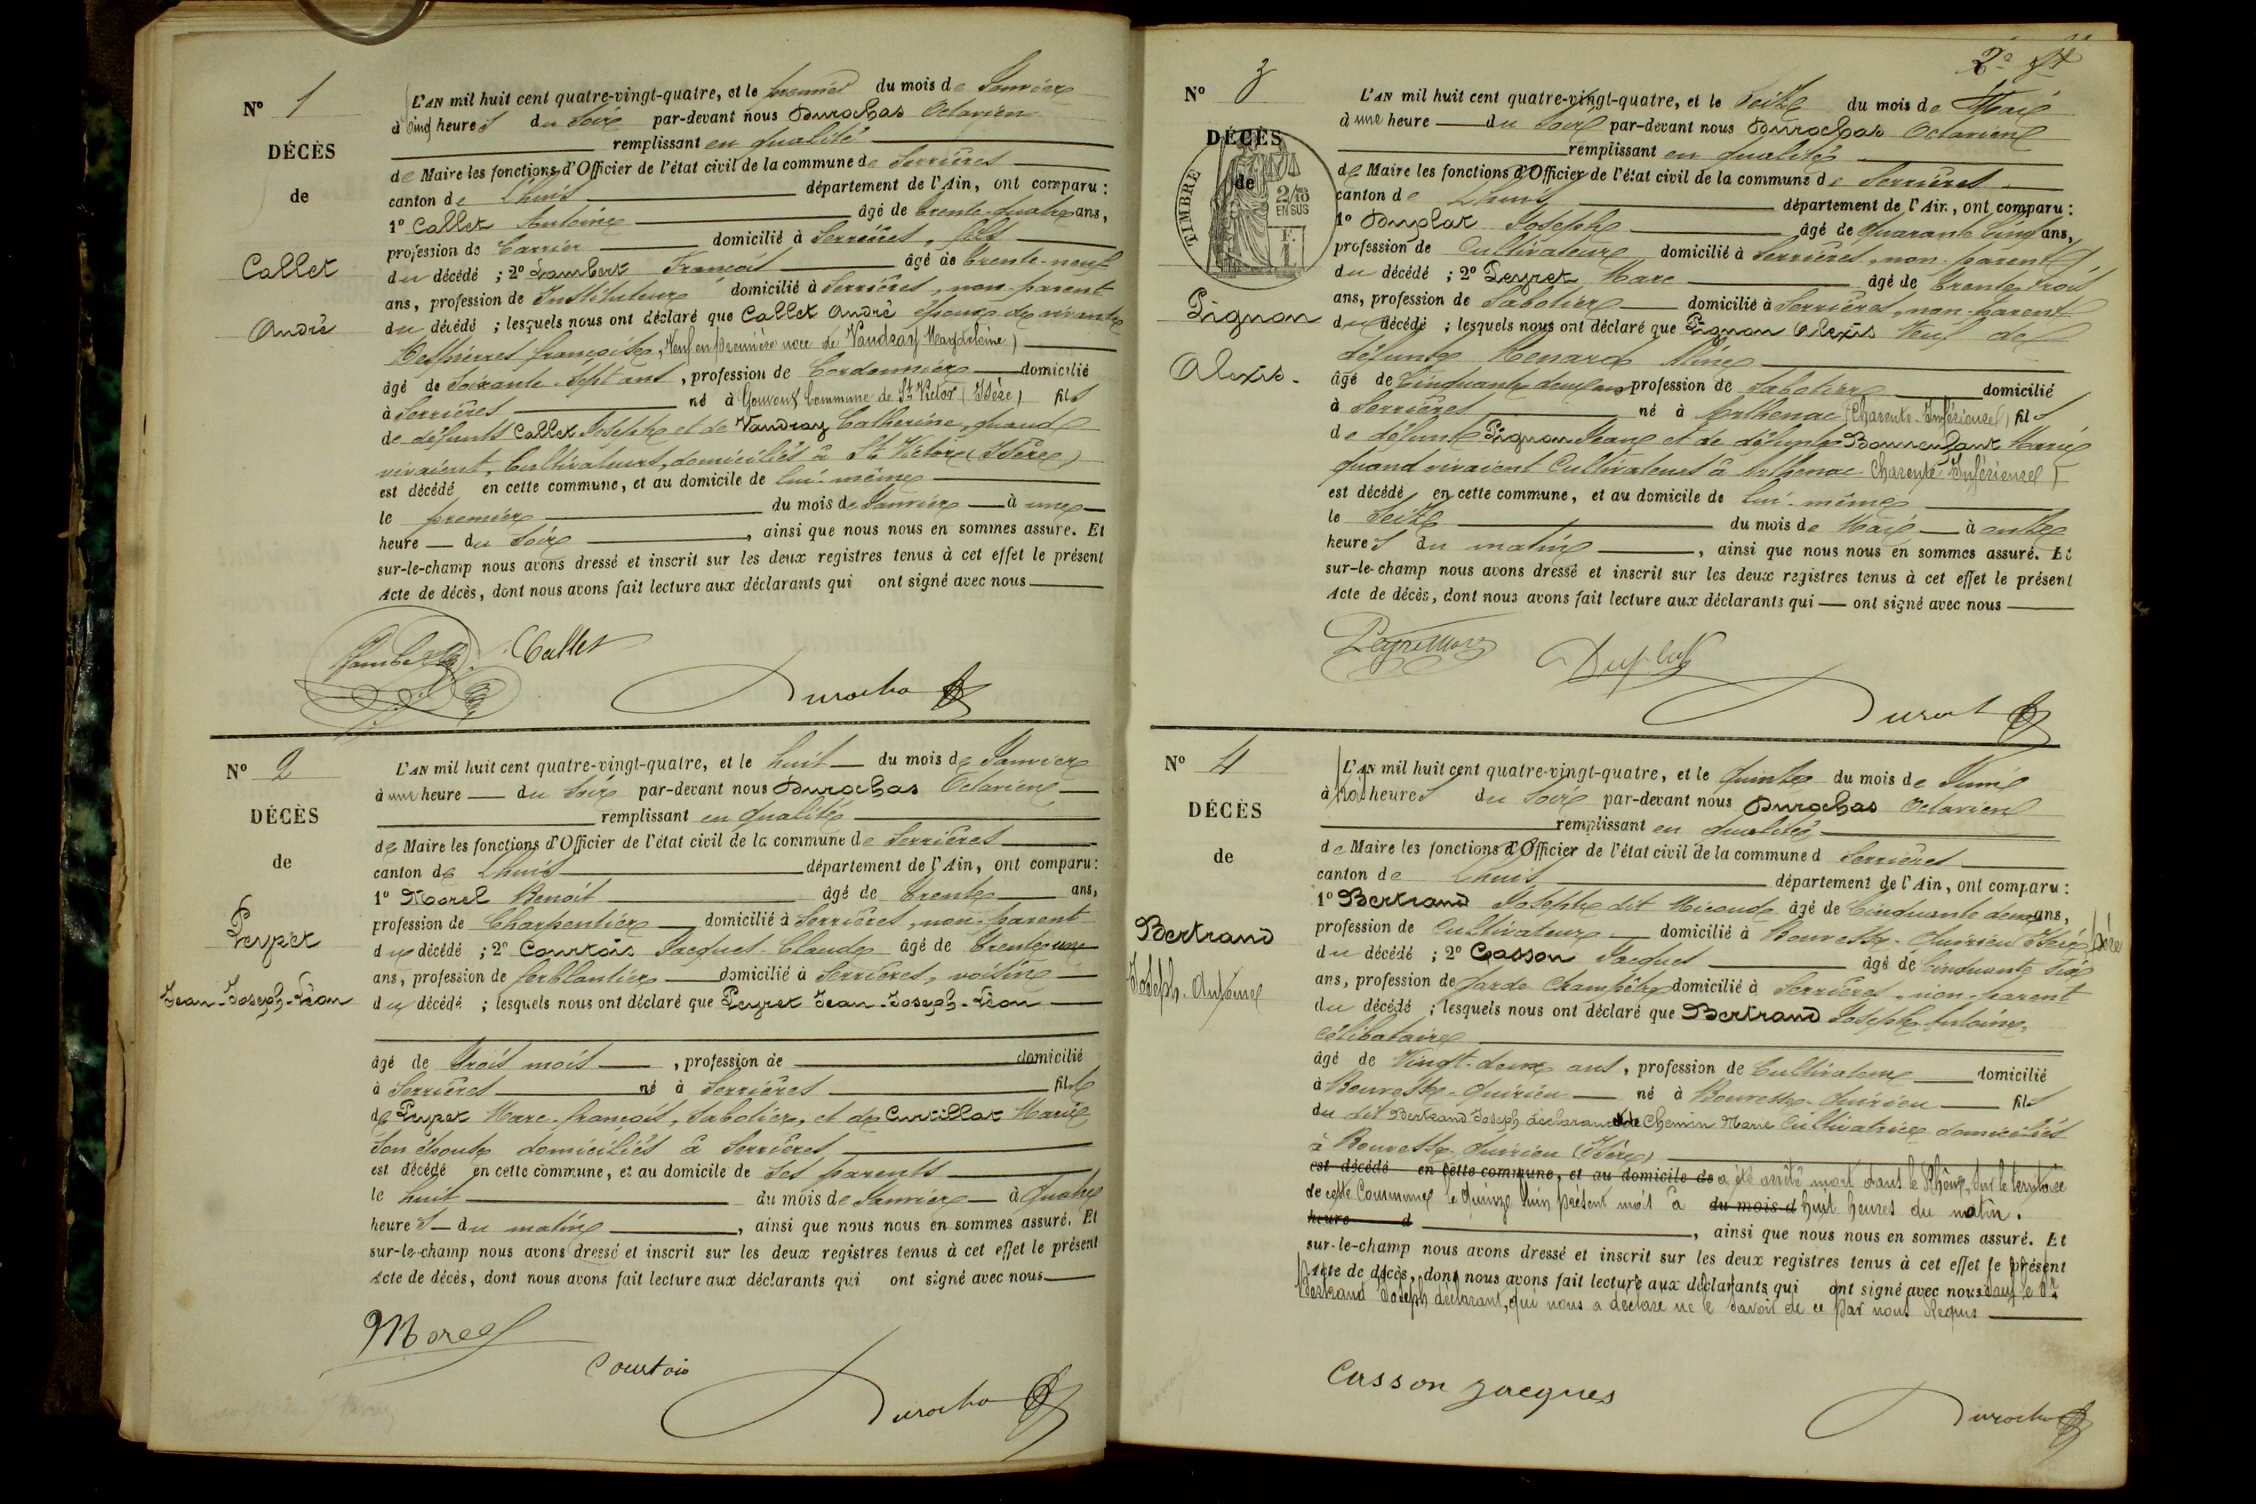 Nº 1
DÉCÈS
de
Callet
André
L'AN mil huit cent quatre-vingt-quatre, et le premier du mois de Janvier
à Cinq heures du Soir par-devant nous Durochas Octavien
remplissant en qualité
de Maire les fonctions d'Officier de l'état civil de la commune de Serrières
canton de Lhuis département de l'Ain, ont comparu :
1º Callet Antoine âgé de trente-quatre ans,
profession de Carrier domicilié à Serrières, fils
du décédé ; 2º Lambert François âgé de trente-neuf
ans, profession de Instituteur domicilié à Serrières, non-parent
du décédé ; lesquels nous ont déclaré que Callet André époux de vivante
françoise, Veuf en première noce de Vaudray Magdeleine)
âgé de soixante-sept ans, profession de Cordonnier domicilié
à Serrières né à Commune de St Victor (Isère) fils
de défunts Callet Joseph et de Vaudray Catherine, quand
vivaient, Cultivateurs, domiciliés à St Victor (Isère)
est décédé en cette commune, et au domicile de lui-même
le premier du mois de Janvier à une
heure du soir, ainsi que nous nous en sommes assuré. Et
sur-le-champ nous avons dressé et inscrit sur les deux registres tenus à cet effet le présent
Acte de décès, dont nous avons fait lecture aux déclarants qui ont signé avec nous
Lambert Callet
Durochas
Nº 2
DÉCÈS
de
Peyret
Jean-Joseph-Léon
L'AN mil huit cent quatre-vingt-quatre, et le huit du mois de Janvier
à une heure du soir par-devant nous Durochas Octavien
remplissant en qualité
de Maire les fonctions d'Officier de l'état civil de la commune de Serrières
canton de Lhuis département de l'Ain, ont comparu :
1º Morel Benoit âgé de trente ans,
profession de Charpentier domicilié à Serrières, non-parent
du décédé ; 2º Courtois Jacques-Claude âgé de trente une
ans, profession de ferblantier domicilié à Serrières, voisin
du décédé ; lesquels nous ont déclaré que Peyret Jean-Joseph-Léon
âgé de trois mois, profession de domicilié
à Serrières né à Serrières fils
de Peyret Marc-françois, Sabotier, et de Curtillat Marie
son épouse domiciliés à Serrières,
est décédé en cette commune, et au domicile de ses parents
le huit du mois de Janvier à quatre
heures du matin, ainsi que nous nous en sommes assuré. Et
sur-le-champ nous avons dressé et inscrit sur les deux registres tenus à cet effet le présent
Acte de décès, dont nous avons fait lecture aux déclarants qui ont signé avec nous
Morel
Courtois
Durochas
2e ft
Nº 3
DÉCÈS
de
TIMBRE
2/10
EN SUS
Pignon
Alexis.
L'AN mil huit cent quatre-vingt-quatre, et le seize du mois de Mai
à une heure du soir par-devant nous Durochas Octavien
remplissant en qualité
de Maire les fonctions d'Officier de l'état civil de la commune de Serrières
canton de Lhuis département de l'Ain, ont comparu :
1º Duplat Joseph âgé de quarante cinq ans,
profession de Cultivateur domicilié à Serrières, non-parent
du décédé ; 2º Peyret Marc âgé de trente trois
ans, profession de Sabotier domicilié à Serrières, non-parent
du décédé ; lesquels nous ont déclaré que Pignon Alexis Veuf de
défunte Menard
âgé de Cinquante deux ans profession de Sabotier domicilié
à Serrières né à Arthenac (Charente-Inférieure) fils
de défunt Pignon Jean et de défunte Bonnenfant Marie
quand vivaient Cultivateurs à Arthenac Charente Inférieure)
est décédé en cette commune, et au domicile de lui-même
le seize du mois de Mai à onze
heures du matin, ainsi que nous nous en sommes assuré. Et
sur-le-champ nous avons dressé et inscrit sur les deux registres tenus à cet effet le présent
Acte de décès, dont nous avons fait lecture aux déclarants qui ont signé avec nous
Peyret Marc
Duplat
Durochas
Nº 4
DÉCÈS
de
Bertrand
Joseph-Antoine
L'AN mil huit cent quatre-vingt-quatre, et le quinze du mois de Juin
à trois heures du soir par-devant nous Durochas Octavien
remplissant en qualité
de Maire les fonctions d'Officier de l'état civil de la commune d Serrières
canton de Lhuis département de l'Ain, ont comparu :
1º Bertrand Joseph dit Miroud âgé de Cinquante deux ans,
profession de Cultivateur domicilié à Bouvesse-Quirieu Isère père
du décédé ; 2º Casson Jacques âgé de Cinquante six
ans, profession de Garde Champêtre domicilié à Serrières, non-parent
du décédé ; lesquels nous ont déclaré que Bertrand Joseph Antoine,
célibataire
âgé de Vingt-deux ans, profession de Cultivateur domicilié
à Bouvesse-Quirieu né à Bouvesse-Quirieu fils
du dit Bertrand Joseph déclarant et de Chemin Marie Cultivatrice domiciliés
à Bouvesse Quirieu (Isère)
est décédé en cette commune, et au domicile de a été arrêté mort dans le Rhône, sur le territoire
de cette Commune le quinze Juin présent mois à du mois d huit heures du matin.
heure d , ainsi que nous nous en sommes assuré. Et
sur-le-champ nous avons dressé et inscrit sur les deux registres tenus à cet effet le présent
Acte de décès, dont nous avons fait lecture aux déclarants qui ont signé avec nous sauf le Sr
Bertrand Joseph déclarant, qui nous a déclaré ne le savoir de ce par nous Requis
Casson Jacques
Durochas